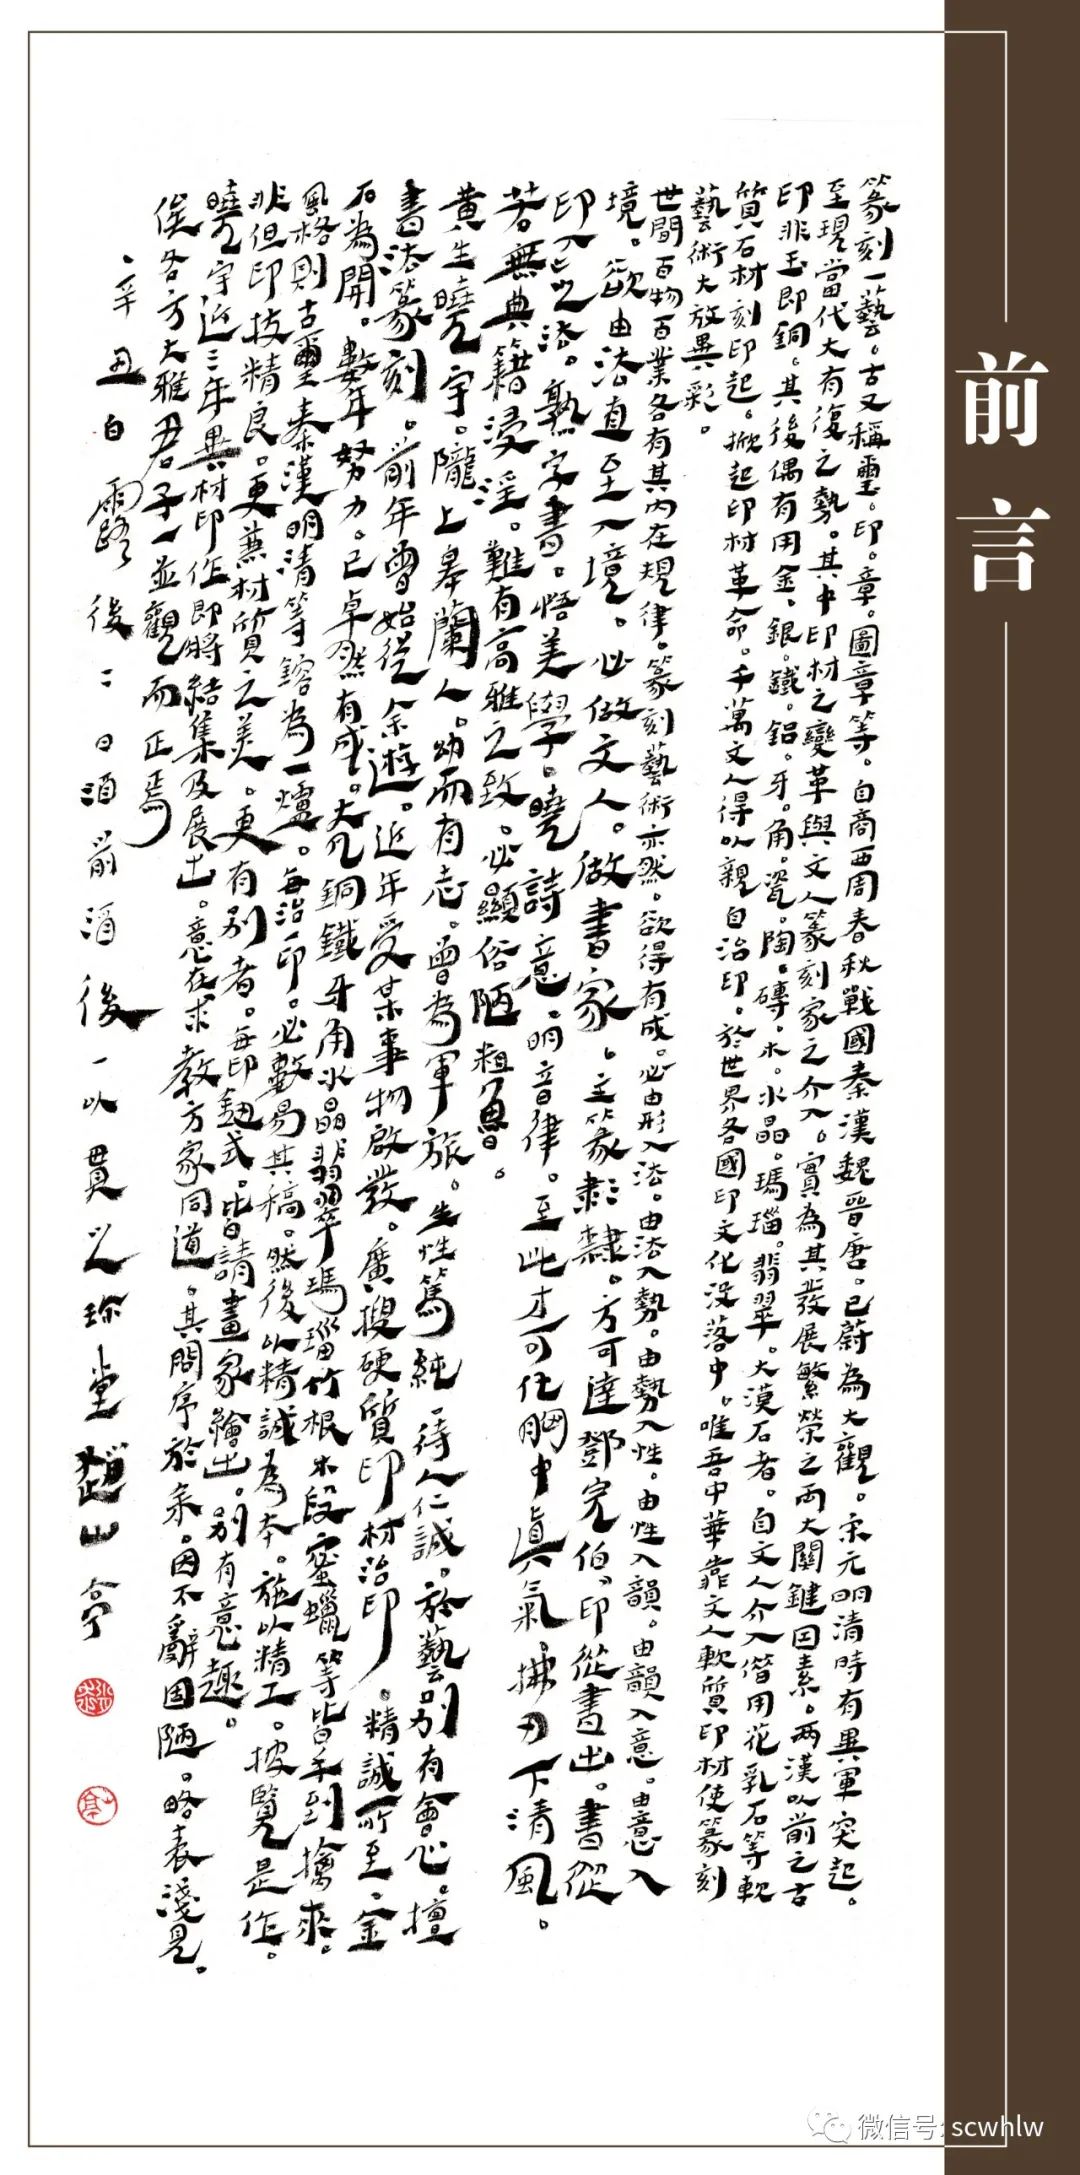 前言
篆刻一藝。古又稱璽。印。章。圖章等。自商西周春秋戰國秦漢魏晉唐。已蔚為大觀。宋元明清時有異軍突起。
至現當代大有復之勢。其中印材之變革與文人篆刻家之介入。實為其發展繁榮之両大關鍵因素。两漢以前之古
印非玉即銅。其後偶有用金、銀。鐵。鋁。牙。角。瓷。陶。磚。木。水晶。瑪瑙。翡翠。大漠石者。自文人介入偕用花乳石等軟
質石材刻印起。掀起印材革命。千萬文人得以親自治印。於世界各國印文化没落中。唯吾中華靠文人軟質印材使篆刻
藝術大放異彩。
世間百物百業各有其内在規律。篆刻藝術亦然。欲得有成。必由形入法。由法入勢。由勢入性。由性入韻。由韻入意。由意入
境。欲由法直至入境。必做文人。做書家。主篆隸。方可達鄧完伯“印從書出。書從
印入”之法。熟字書。悟美學。曉詩意。明音律。至此才可化胸中真氣拂刀下清風。
若無典籍浸淫。難有高雅之致。必顯俗陋粗魯。
黄生曉宇。隴上皋蘭人。幼而有志。曾為軍旅。生性篤純。待人仁誠。於藝别有會心。擅
書法篆刻。前年曾始從余遊。近年受某事物啟發。廣搜硬質印材治印。精誠所至、金
石為開。數年努力。已卓然有成。大凡銅鐵牙角水晶翡翠瑪瑙竹根木段蜜蠟等皆手到擒來。
風格則古璽秦漢明清等鎔為一爐。每治印。必數易其稿。然後以精誠為本。施以精工。披覽是作。
非但印技精良。更兼材質之美。更有别者。每印鈕式。皆請畫家繪出。别有意趣。
曉宇近三年異材印作即將結集及展出。意在求教方家同道。其問序於余。因不辭固陋。略表淺見。
俟各方大雅君子一並觀而正焉
辛丑白露後二日酒前酒後一以貫之珎堂趙山亭
微信号: scwhlw